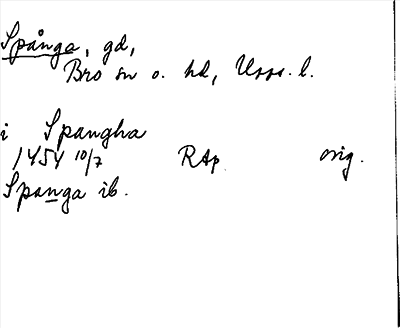 Spånga, gd,
Bro sn o. hd, Upps. l.
i Spangha
1454 10/7 RAp. orig.
Spanga ib.